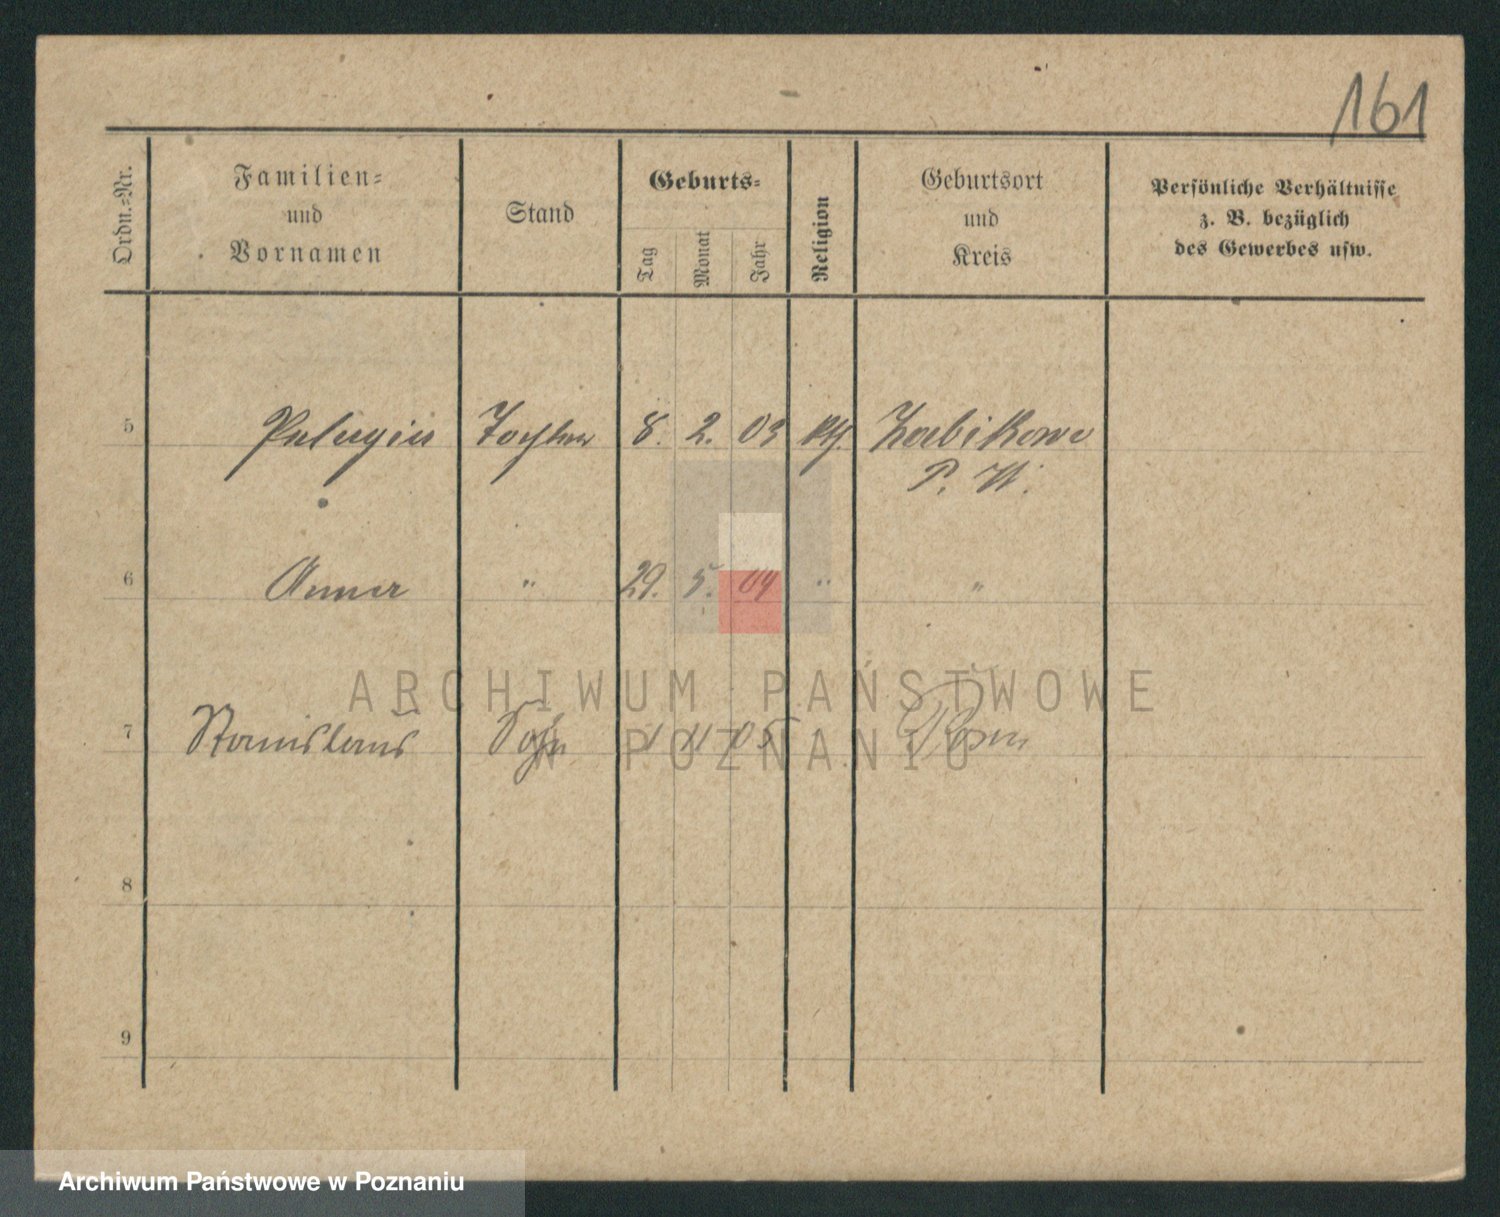 161
Ordn.-Nr.
Familien-
und
Vornamen
Stand
Geburts-
Tag
Monat
Jahr
Religion
Geburtsort
und
Kreis
Persönliche Verhältnisse
z. B. bezüglich
des Gewerbes usw.
5 Pelagia Tochter 8. 2. 03 kth. Zabikowo
P. W.
6 Anna " 29. 5. 04 " "
7 Stanislaus Sohn 11 05 Posen
8
9
ARCHIWUM PAŃSTWOWE
W POZNANIU
Archiwum Państwowe w Poznaniu